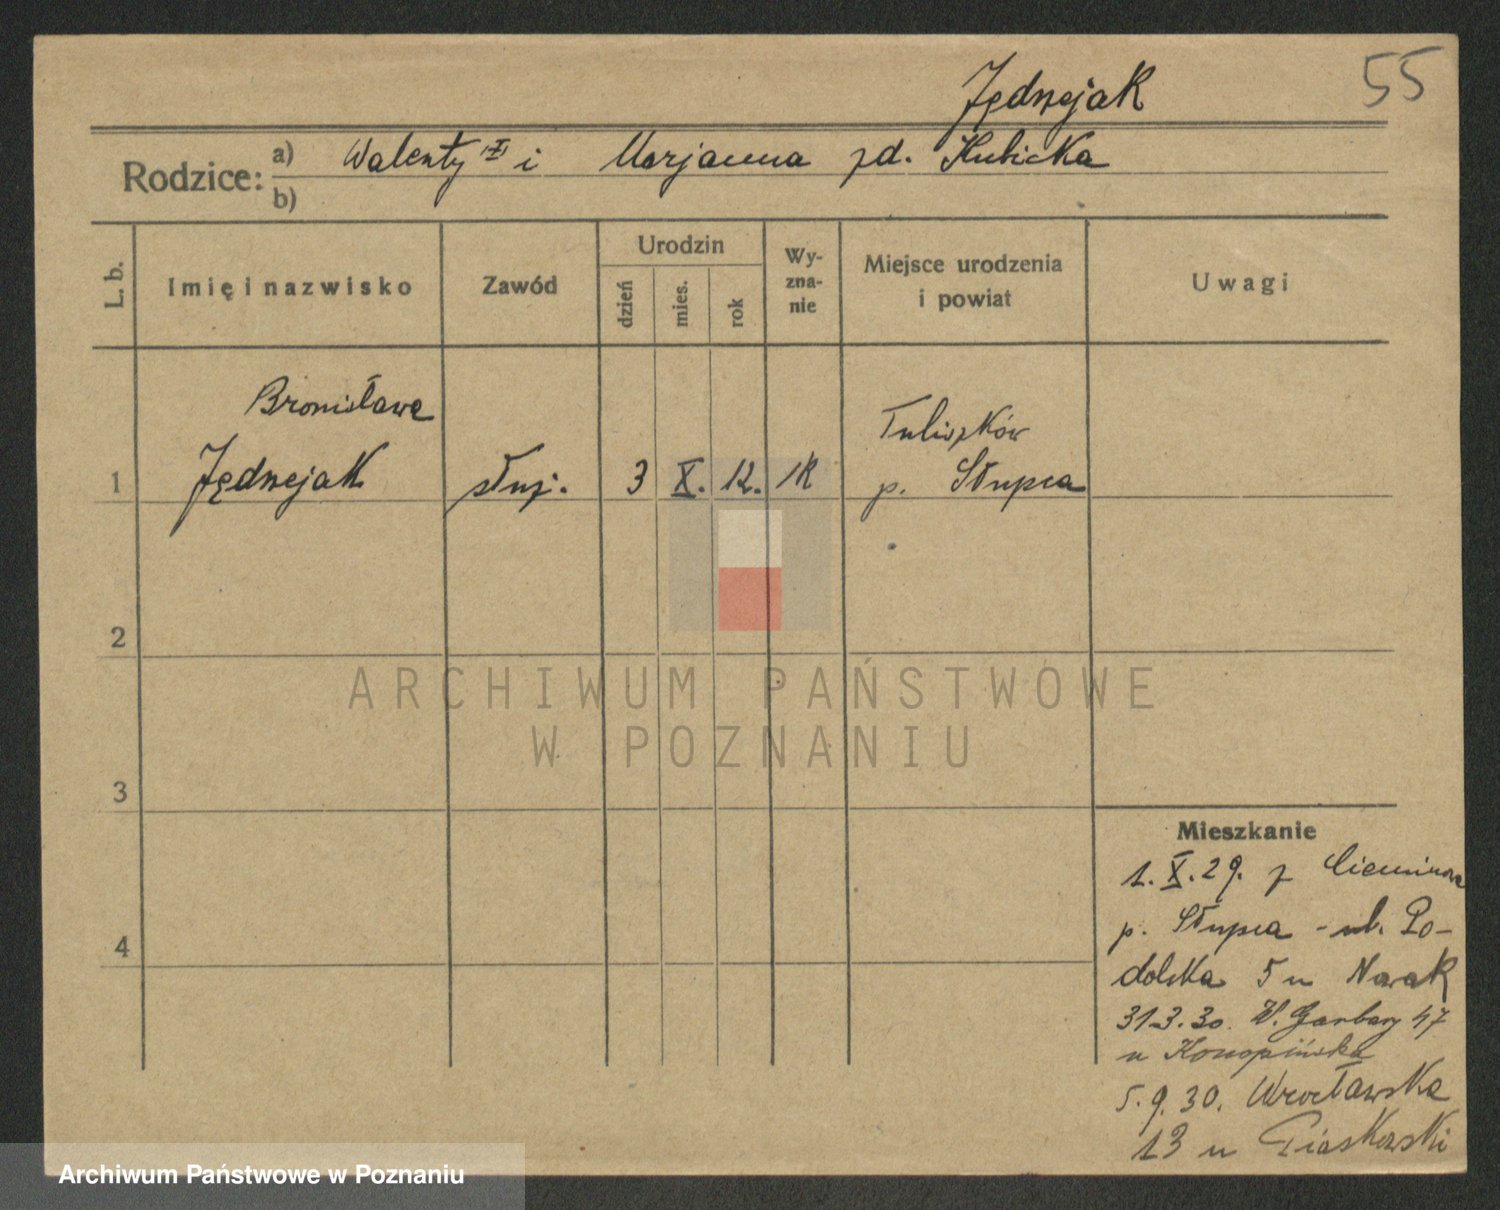 55
Jędrzejak
Rodzice: a) Walenty i Marjanna zd. Kubicka
b)
L. b.
Imię i nazwisko
Zawód
Urodzin
dzień
mies.
rok
Wy-
zna-
nie
Miejsce urodzenia
i powiat
Uwagi
Bronisława
1 Jędrzejak służ. 3 X. 12. rk
Tuliszków
p. Słupca
2
3
4
ARCHIWUM PAŃSTWOWE
W POZNANIU
Mieszkanie
1. X. 29. z
p. Słupca - ul. Po-
dolska 5 u Nowak
31.3.30. W. Garbary 47
u Konopińska
5.9.30. Wrocławska
13 u Piaskowski
Archiwum Państwowe w Poznaniu